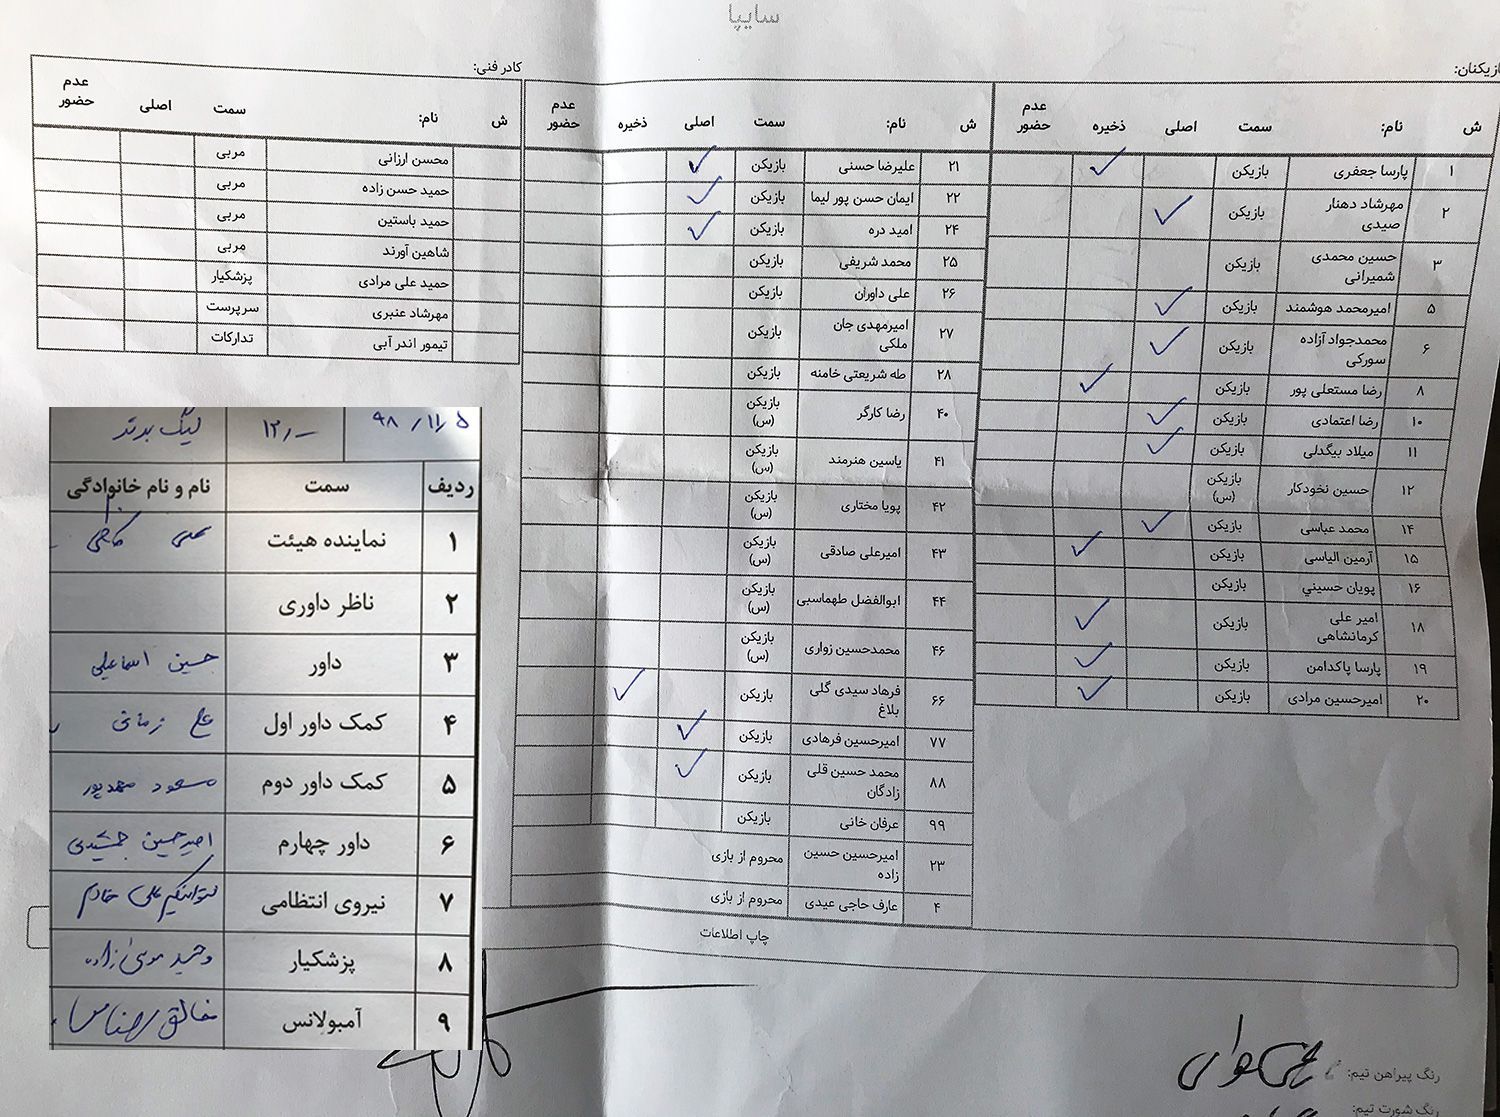 سایپا
بازیکنان:
ش نام: سمت اصلی ذخیره عدم حضور
۱ پارسا جعفری بازیکن ✓
۲ مهرشاد دهنار صیدی بازیکن ✓
۳ حسین محمدی شمیرانی بازیکن
۵ امیرمحمد هوشمند بازیکن ✓
۶ محمدجواد آزاده سورکی بازیکن ✓
۸ رضا مستعلی پور بازیکن ✓
۱۰ رضا اعتمادی بازیکن ✓
۱۱ میلاد بیگدلی بازیکن ✓
۱۲ حسین نخودکار بازیکن (س)
۱۴ محمد عباسی بازیکن ✓
۱۵ آرمین الیاسی بازیکن ✓
۱۶ پویان حسیني بازیکن
۱۸ امیر علی کرمانشاهی بازیکن ✓
۱۹ پارسا پاکدامن بازیکن ✓
۲۰ امیرحسین مرادی بازیکن ✓
ش نام: سمت اصلی ذخیره عدم حضور
۲۱ علیرضا حسنی بازیکن ✓
۲۲ ایمان حسن پور لیما بازیکن ✓
۲۴ امید دره بازیکن ✓
۲۵ محمد شریفی بازیکن
۲۶ علی داوران بازیکن
۲۷ امیرمهدی جان ملکی بازیکن
۲۸ طه شریعتی خامنه بازیکن
۴۰ رضا کارگر بازیکن (س)
۴۱ یاسین هنرمند بازیکن (س)
۴۲ پویا مختاری بازیکن (س)
۴۳ امیرعلی صادقی بازیکن (س)
۴۴ ابوالفضل طهماسبی بازیکن (س)
۴۶ محمدحسین زواری بازیکن (س)
۶۶ فرهاد سیدی گلی بلاغ بازیکن ✓
۷۷ امیرحسین فرهادی بازیکن ✓
۸۸ محمد حسین قلی زادگان بازیکن ✓
۹۹ عرفان خانی بازیکن
۲۳ امیرحسین حسین زاده محروم از بازی
۴ عارف حاجی عیدی محروم از بازی
کادر فنی:
ش نام: سمت اصلی عدم حضور
محسن ارزانی مربی
حمید حسن زاده مربی
حمید باستین مربی
شاهین آورند مربی
حمید علی مرادی پزشکیار
مهرشاد عنبری سرپرست
تیمور اندر آبی تدارکات
۹۸/۱۱/۵ ۱۲/- لیگ برتر
ردیف سمت نام و نام خانوادگی
۱ نماینده هیئت
۲ ناظر داوری
۳ داور حسین اسماعیلی
۴ کمک داور اول علی زمانی
۵ کمک داور دوم مسعود مهدیپور
۶ داور چهارم امیرحسین جمشیدی
۷ نیروی انتظامی ستوانیکم علی خادم
۸ پزشکیار وحید موسی زاده
۹ آمبولانس خالق
چاپ اطلاعات
رنگ پیراهن تیم:
رنگ شورت تیم: